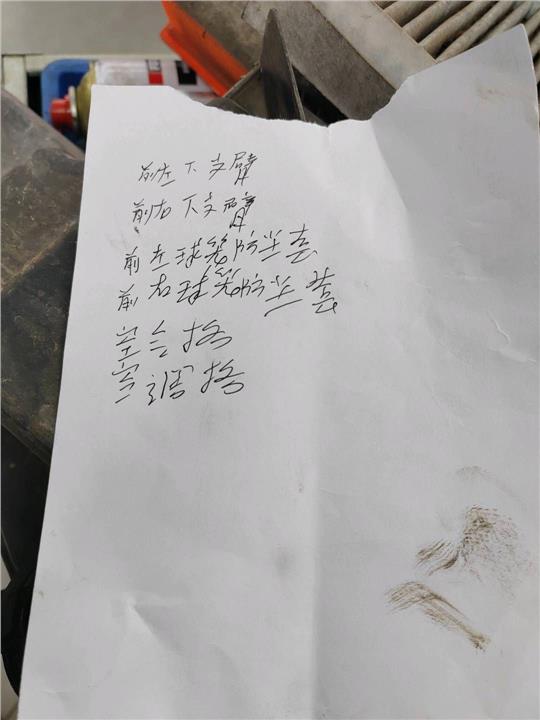 前左下支臂
前右下支臂
前左球笼防尘套
前右球笼防尘套
空合格
空调格